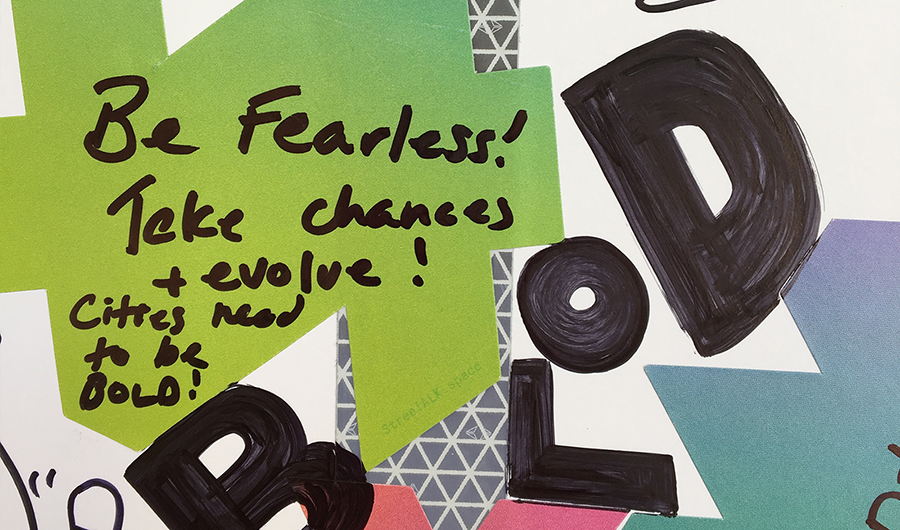 Be Fearless!
Take chances
+ evolve!
Cities need
to be
BOLD!
StreetALK space
BOLD